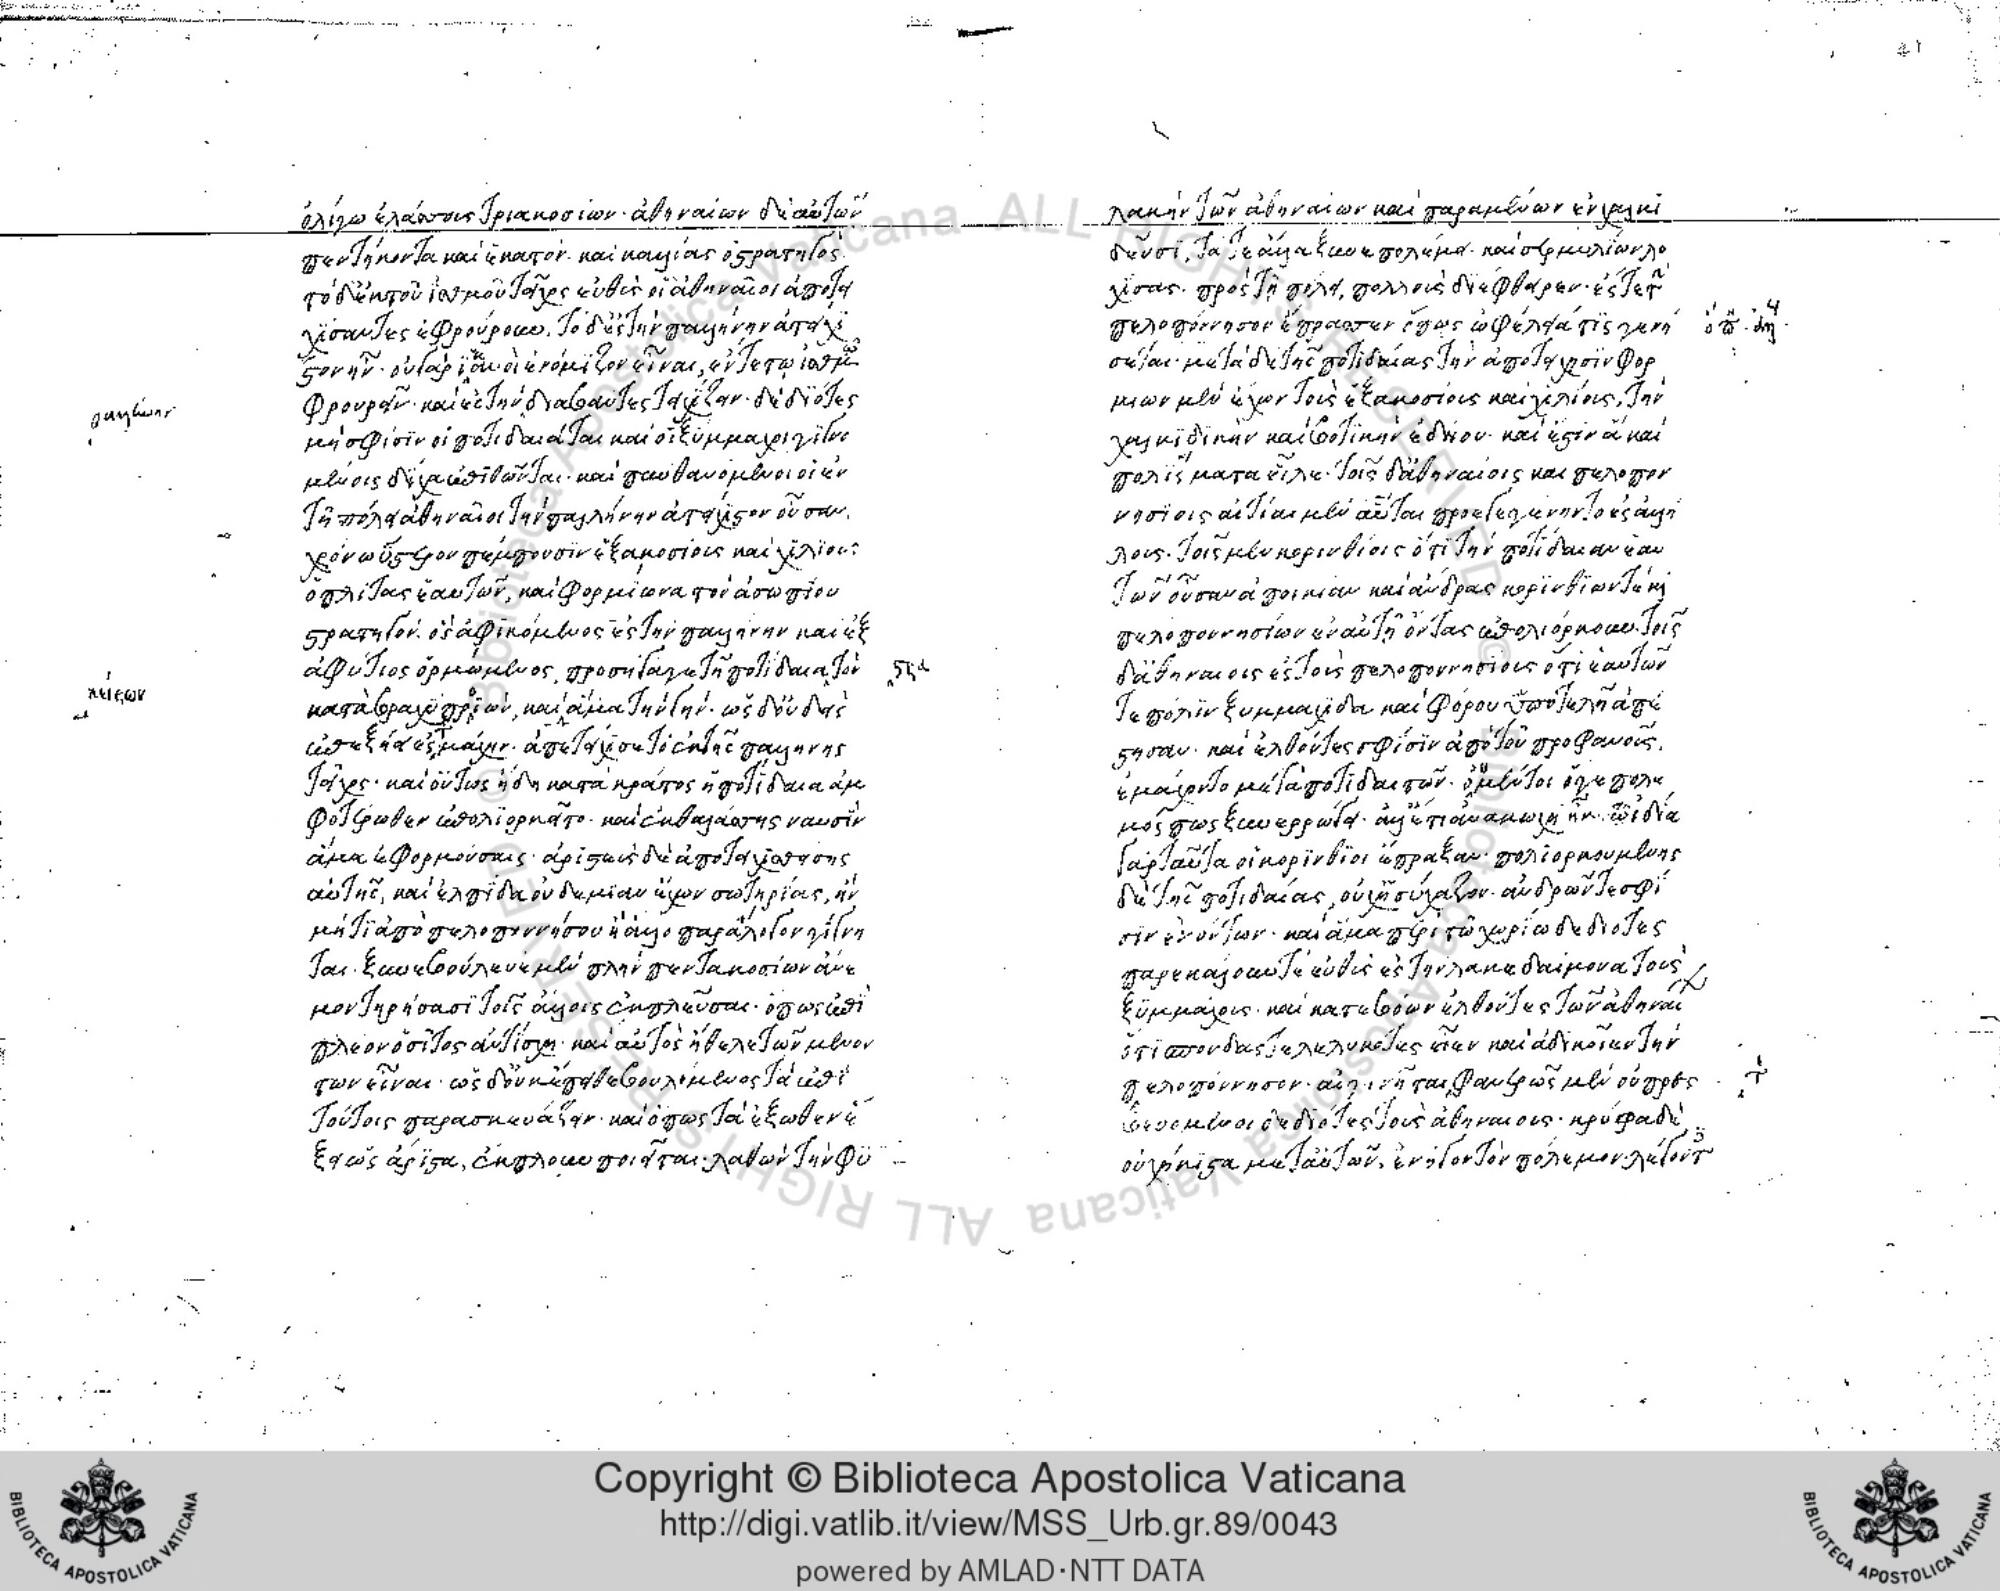 ὀλίγω ἐλάσσους τριακοσίων· ἀθηναίων δὲ αὐτῶν
πεντήκοντα καὶ ἑκατόν· καὶ καλλίας ὁ στρατηγός·
τὸ δ' ἐκ τοῦ ἰσθμοῦ τεῖχος εὐθὺς οἱ ἀθηναῖοι ἀποτει
χίσαντες ἐφρούρουν. τὸ δ' ἐς τὴν παλλήνην ἀτείχι
στον ἦν· οὐ γὰρ ἱκανοὶ ἐνόμιζον εἶναι, ἔν τε τῶ ἰσθμῶ
φρουρεῖν· καὶ ἐς τὴν διαβάντες τειχίζειν· δεδιότες
μὴ σφίσιν οἱ ποτιδαιάται καὶ οἱ ξύμμαχοι γιγνο
μένοις δίχα ἐπιθῶνται· καὶ πυνθανόμενοι οἱ ἐν
τῇ πόλει ἀθηναῖοι τὴν παλλήνην ἀτείχιστον οὖσαν.
χρόνω ὕστερον πέμπουσιν ἑξακοσίους καὶ χιλίους
ὁπλίτας ἑαυτῶν, καὶ φορμίωνα τὸν ἀσωπίου
στρατηγόν. ὃς ἀφικόμενος ἐς τὴν παλλήνην καὶ ἐξ
ἀφύτιος ὁρμώμενος, προσήγαγε τῇ ποτιδαία τὸν
κατὰ βραχὺ προϊών, καὶ ἅμα τὴν γῆν· ὡς δ' οὐδεὶς
ἐπεξήει ἐς μάχην· ἀπετείχισε τὸ ἐκ τῆς παλλήνης
τεῖχος· καὶ οὕτως ἤδη κατὰ κράτος ἡ ποτίδαια ἀμ
φοτέρωθεν ἐπολιορκεῖτο· καὶ ἐκ θαλάσσης ναυσὶν
ἅμα ἐφορμούσαις· ἀριστεὺς δὲ ἀποτειχισθείσης
αὐτῆς, καὶ ἐλπίδα οὐδεμίαν ἔχων σωτηρίας, ἢν
μή τι ἀπὸ πελοποννήσου ἢ ἄλλο παράλογον γίγνη
ται· ξυνεβούλευε μὲν πλὴν πεντακοσίων ἄνε
μον τηρήσασι τοῖς ἄλλοις ἐκπλεῦσαι· ὅπως ἐπὶ
πλέον ὁ σῖτος ἀντίσχη· καὶ αὐτὸς ἤθελε τῶν μενόν
των εἶναι· ὡς δ' οὐκ ἔπειθε βουλόμενος τὰ ἐπὶ
τούτοις παρασκευάζειν· καὶ ὅπως τὰ ἔξωθεν ἕ
ξει ὡς ἄριστα, ἔκπλουν ποιεῖται· λαθὼν τὴν φυ
λακὴν τῶν ἀθηναίων καὶ παραμένων ἐν χαλκι
δεῦσι, τά τε ἄλλα ξυνεπολέμει· καὶ σερμυλίων λο
χίσας· πρὸς τῇ πόλει, πολλοὺς διέφθειρεν· ἔς τε τὴν
πελοπόννησον ἔπρασσεν ὅπως ὠφέλειά τις γενή
σεται· μετὰ δὲ τῆς ποτιδαίας τὴν ἀποτείχισιν φορ
μίων μὲν ἔχων τοὺς ἑξακοσίους καὶ χιλίους, τὴν
χαλκιδικὴν καὶ βοτικὴν ἐδήου· καὶ ἔστιν ἃ καὶ
πολίσματα εἷλε· τοῖς δ' ἀθηναίοις καὶ πελοπον
νησίοις αἰτίαι μὲν αὗται προεγεγένηντο ἐς ἀλλή
λους. τοῖς μὲν κορινθίοις ὅτι τὴν ποτίδαιαν ἑαυ
τῶν οὖσαν ἀποικίαν καὶ ἄνδρας κορινθίων τε καὶ
πελοποννησίων ἐν αὐτῇ ὄντας ἐπολιόρκουν. τοῖς
δ' ἀθηναίοις ἐς τοὺς πελοποννησίους ὅτι ἑαυτῶν
τε πόλιν ξυμμαχίδα καὶ φόρου ὑποτελῆ ἀπέ
στησαν· καὶ ἐλθόντες σφίσιν ἀπὸ τοῦ προφανοῦς,
ἐμάχοντο μετὰ ποτιδαιατῶν· οὐ μέντοι ὅ γε πόλε
μός πως ξυνερρώγει· ἀλλ' ἔτι ἀνακωχὴ ἦν· ἰδία
γὰρ ταῦτα οἱ κορίνθιοι ἔπραξαν· πολιορκουμένης
δὲ τῆς ποτιδαίας, οὐχ ἡσύχαζον· ἀνδρῶν τε σφί
σιν ἐνόντων· καὶ ἅμα περὶ τῶ χωρίω δεδιότες
παρεκάλουν τε εὐθὺς ἐς τὴν λακεδαίμονα τοὺς
ξυμμάχους· καὶ κατεβόων ἐλθόντες τῶν ἀθηναί
ὅτι σπονδάς τε λελυκότες εἶεν καὶ ἀδικοῖεν τὴν
πελοπόννησον· αἰγινῆταί φανερῶς μὲν οὐ πρεσ
βευόμενοι δεδιότες τοὺς ἀθηναίους· κρύφα δὲ
οὐχ ἥκιστα μετ' αὐτῶν, ἐνῆγον τὸν πόλεμον λέγοντες
Copyright © Biblioteca Apostolica Vaticana
http://digi.vatlib.it/view/MSS_Urb.gr.89/0043
powered by AMLAD·NTT DATA